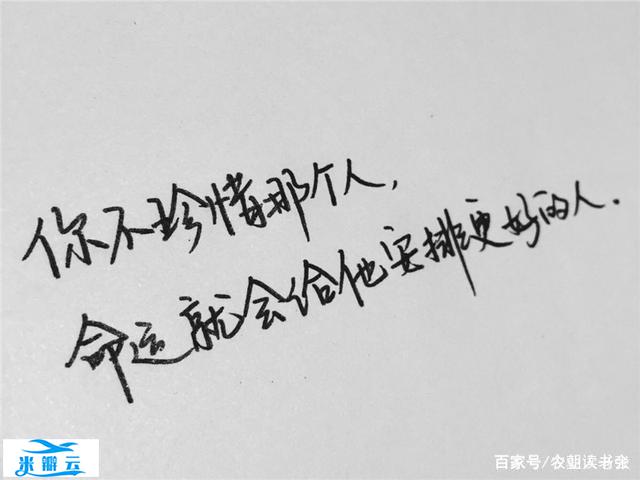 你不珍惜那个人,
命运就会给他安排更好的人.
米瓣云
百家号/农曌读老张